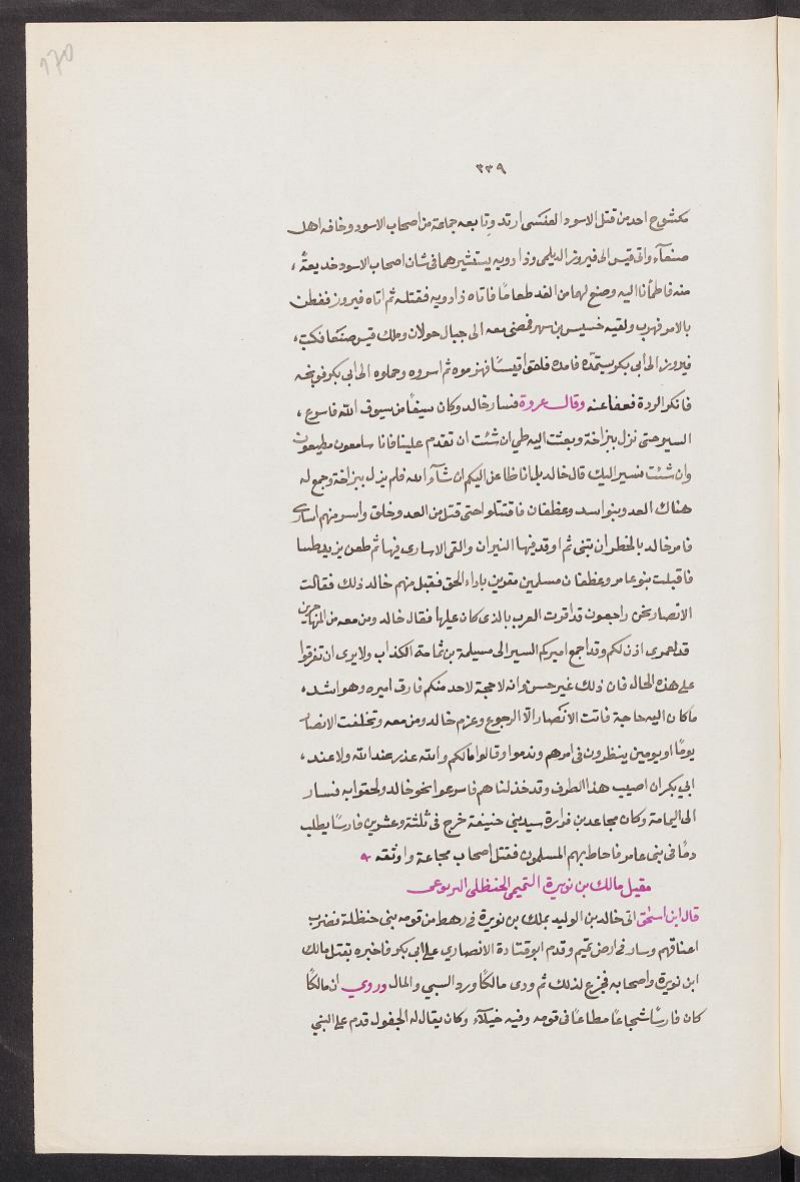 170
٣٣٩
مكشوح احد من قتل الاسود العنسى ارتد وتابعه جماعة من اصحاب الاسود وخافه اهل
صنعآء واتى قيس الى فيروز الديلمى وذا دويه يستشيرهما فى شان اصحاب الاسود خديعةً
منه فاطمأنا اليه وصنع لهما من الغد طعامًا فاتاه ذادويه فقتله ثم اتاه فيروز ففطن
بالامر فهرب ولقيه خسيس بن سهر فمضى معه الى جبال خولان وملك قيس صنعا فكتب
فيروز الى ابى بكر يستمدّه فامده فلقوا قيسًا فهزموه ثم اسروه وحملوه الى ابى بكر فوبخه
فانكر الردة فعفا عنه وقال عروة فسار خالد وكان سيفًا من سيوف الله فاسرع
السير حتى نزل ببزاخة وبعثت اليه طي ان شئت ان تقدم علينا فانا سامعون مطيعون
وان شئت نسير اليك قال خالد بل انا ظاعن اليكم ان شآء الله فلم يزل ببزاخة وجمع له
هناك العدو بنو اسد وغطفان فاقتتلوا حتى قتل من العدو خلق واسر منهم اسارى
فامر خالد بالحظر ان تبنى ثم اوقد فيها النيران والقى الاسارى فيها ثم ظعن يريد طيا
فاقبلت بنو عامر وغطفان مسلمين مقرين باداء الحق فقبل منهم خالد ذلك فقالت
الانصار نحن راجعون قد اقرت العرب بالذى كان عليها فقال خالد ومن معه من المهاجرين
قد لعمرى اذن لكم وقد اجمع اميركم السير الى مسيلمة بن ثمامة الكذاب ولا يرى ان تفرقوا
على هذه الحال فان ذلك غير حسن وانه لا حجة لاحد منكم فارق اميره وهو اشد
ما كان اليه حاجة فابت الانصار الا الرجوع وعزم خالد ومن معه وتخلفت الانصار
يومًا او يومين ينظرون فى امرهم وندموا وقالوا مالكم والله عذر عند الله ولا عند
ابى بكر ان اصيب هذا الطرف وقد خذلناهم فاسرعوا نحو خالد ولحقوا به فسار
الى اليمامة وكان مجاعه بن فرارة سيد بنى حنيفة خرج فى ثلثة وعشرين فارسًا يطلب
دمًا فى بنى عامر فاحاط بهم المسلمون فقتل اصحاب مجاعة واوثقه
مقيل مالك بن نويرة التميمى الحنظلى اليربوعى
قال ابن اسحٰق اتى خالد بن الوليد بملك بن نويرة فى رهط من قومه بنى حنظلة فضرب
اعناقهم وسار فى ارض تميم وقدم ابو قتادة الانصاري على ابى بكر فاخبره بقتل مالك
ابن نويرة واصحابه فجزع لذلك ثم ودى مالكًا ورد السبي والمال وروي ان مالكًا
كان فارسًا شجاعًا مطاعًا فى قومه وفيه خيلآء وكان يقال له الجفول قدم على النبي